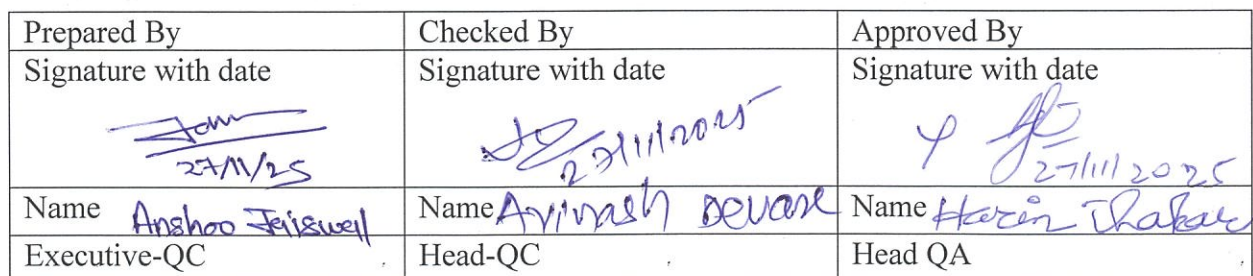 Prepared By
Checked By
Approved By
Signature with date
Signature with date
Signature with date
27/11/25
27/11/2025
27/11/2025
Name Anshoo Jaiswal
Name Avinash Devare
Name Harin Thakar
Executive-QC
Head-QC
Head QA